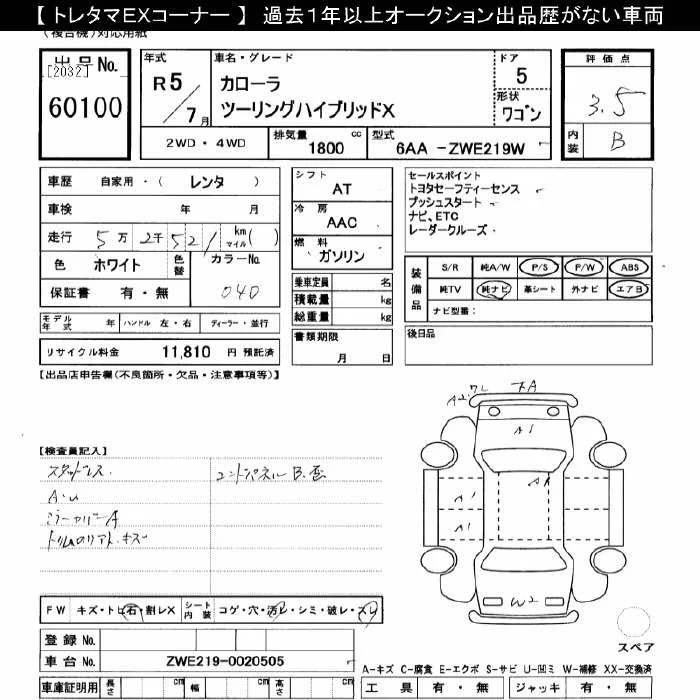 【 トレタマEXコーナー 】 過去1年以上オークション出品歴がない車両
(複合機)対応用紙
出品No.
[2032]
60100
年式
R5/7月
車名・グレード
カローラ
ツーリングハイブリッドX
ドア
5
形状
ワゴン
評価点
3.5
内装
B
2WD・4WD
排気量 1800 cc
型式 6AA -ZWE219W
車歴 自家用・( レンタ )
車検 年 月
走行 5万 2千 521 km マイル ( )
色 ホワイト 色替 カラーNo.
保証書 有・無 040
モデル年式 年 ハンドル 左・右 ディーラー・並行
リサイクル料金 11,810 円 預託済
シフト
AT
冷房
AAC
燃料
ガソリン
乗車定員 名
積載量 kg
総重量 kg
書類期限
月 日
セールスポイント
トヨタセーフティーセンス
プッシュスタート
ナビ、ETC
レーダークルーズ
装備品
S/R 純A/W P/S P/W ABS
純TV 純ナビ 革シート 外ナビ エアB
ナビ型番:
後日品
【出品店申告欄(不良箇所・欠品・注意事項等)】
【検査員記入】
スタッドレス
エンドパネルB.歪
A・U
ミラーカバーA
トリム内リアト、キズ
A2
ワレ
A1
A1
A1
W2
FW キズ・トビ石・割レX シート内装 コゲ・穴・汚レ・シミ・破レ・スレ
登録No.
車台No. ZWE219-0020505
車庫証明用 長さ cm 幅 cm 高さ cm
スペア
A-キズ C-腐食 E-エクボ S-サビ U-凹ミ W-補修 XX-交換済
工具 有・無 ジャッキ 有・無